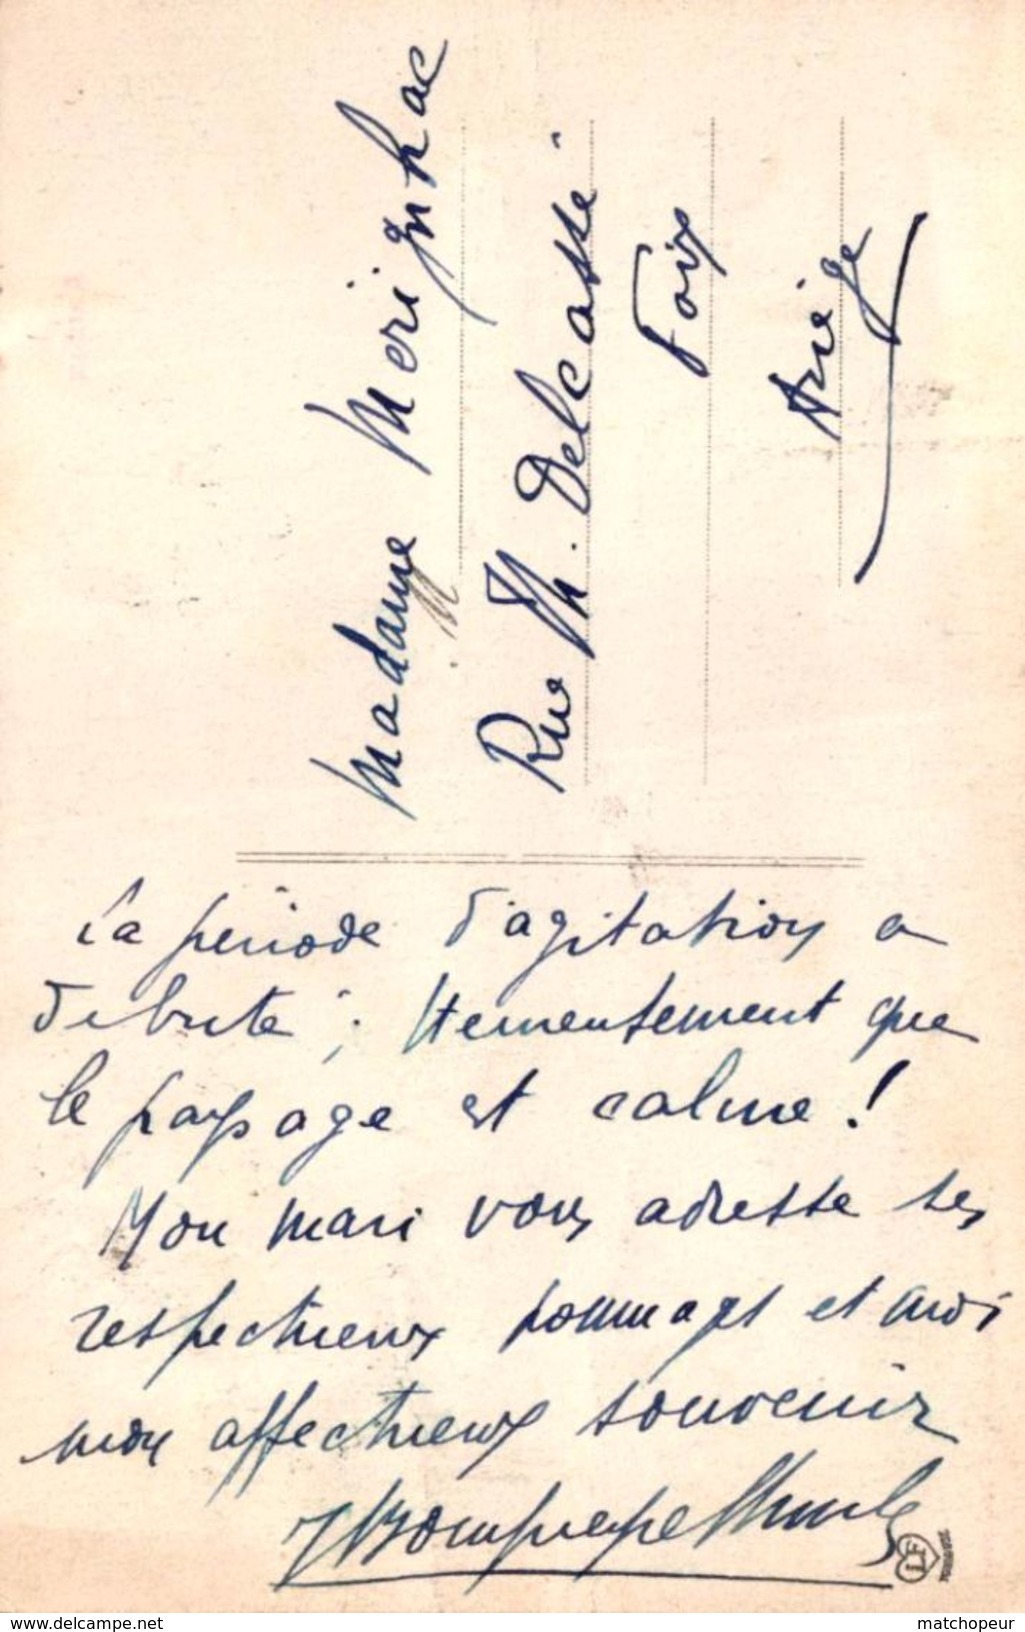 La période d'agitation a
débuté ; Heureusement que
le paysage est calme !
Mon mari vous adresse ses
respectueux hommages et moi
mon affectueux souvenir
Madame Merignhac
Rue Th. Delcassé
Foix
Ariège
LF
www.delcampe.net
matchopeur